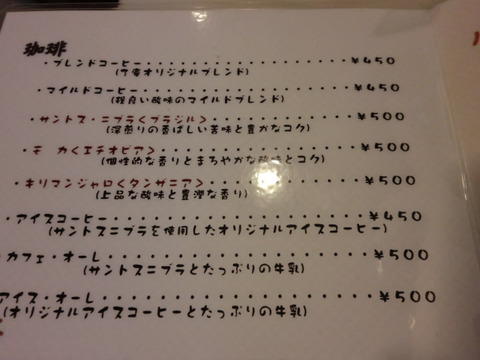 珈琲
・ブレンドコーヒー・・・・・・・・・・・・・・・・・・¥450
オリジナルブレンド)
・マイルドコーヒー・・・・・・・・・・・・・・・・・・¥450
(程良い酸味のマイルドブレンド)
・サントス・ニブラ<ブラジル>・・・・・・・・・・・・¥500
(深煎りの香ばしい苦味と豊かなコク)
・モ カ<エチオピア>・・・・・・・・・・・・・・・・¥500
(個性的な香りとまろやかな酸味とコク)
・キリマンジャロ<タンザニア>・・・・・・・・・・・・¥500
(上品な酸味と豊潤な香り)
・アイスコーヒー・・・・・・・・・・・・・・・・・・・¥450
(サントスニブラを使用したオリジナルアイスコーヒー)
カフェ・オーレ・・・・・・・・・・・・・・・・・・・・¥500
(サントスニブラとたっぷりの牛乳)
アイス・オーレ・・・・・・・・・・・・・・・・・・・・¥500
(オリジナルアイスコーヒーとたっぷりの牛乳)